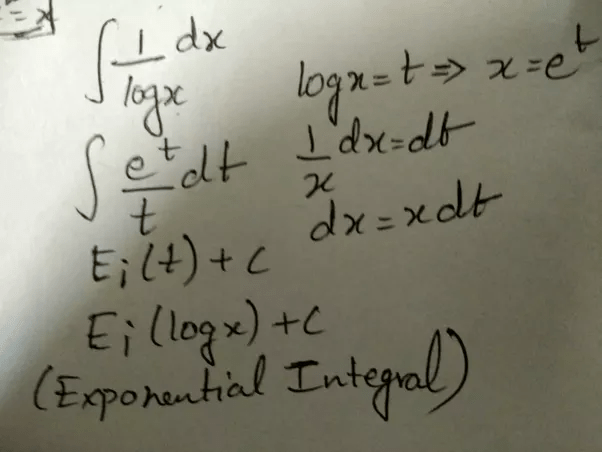 = x
∫ 1/logx dx
logx = t ⇒ x = e^t
∫ e^t/t dt
1/x dx = dt
dx = x dt
Ei(t) + c
Ei(logx) + c
(Exponential Integral)